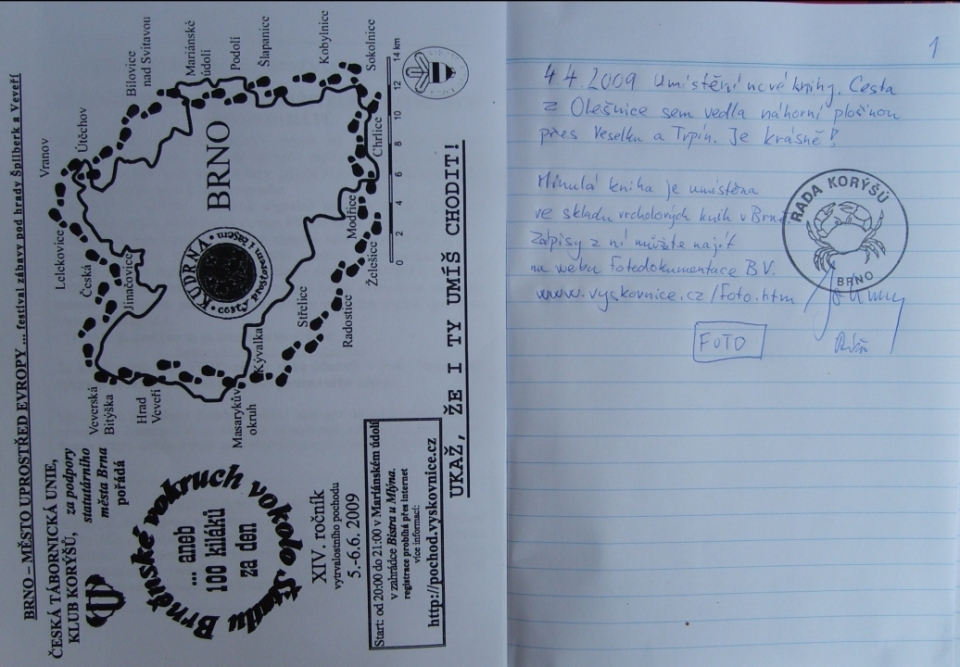 BRNO – MĚSTO UPROSTŘED EVROPY ... festival zábavy pod hrady Špilberk a Veveří
ČESKÁ TÁBORNICKÁ UNIE,
KLUB KORÝŠŮ, za podpory
statutárního
města Brna
pořádá
Brněnské vokruch vokolo Štatlu
... aneb
100 kiláků
za den
XIV. ročník
vytrvalostního pochodu
5.-6.6. 2009
Start: od 20:00 do 21:00 v Mariánském údolí
v zahrádce Bistra u Mlýna.
registrace probíhá přes internet
více informací:
http://pochod.vyskovnice.cz
Veverská
Bítýška
Hrad
Veveří
Masarykův
okruh
Kývalka
Jinačovice
Česká
Lelekovice
Vranov
Útěchov
Bílovice
nad Svitavou
Mariánské
údolí
Podolí
Šlapanice
Kobylnice
Sokolnice
Chrlice
Modřice
Želešice
Radostice
Střelice
BRNO
KUDRNA
cesty prostorem i časem
0 2 4 6 8 10 12 14 km
UKAŽ, ŽE I TY UMÍŠ CHODIT!
1
4.4.2009 Umístění nové knihy. Cesta
z Olešnice sem vedla náhorní plošinou
přes Veselku a Trpín. Je krásně!
Minulá kniha je umístěna
ve skladu vrcholových knih v Brně
Zápisy z ní můžete najít
na webu Fotodokumentace B.V.
www.vyskovnice.cz/foto.htm
RADA KORÝŠŮ
BRNO
FOTO